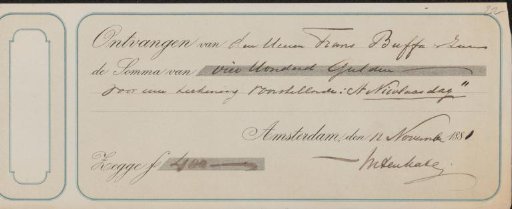 Ontvangen van den Heeren Frans Buffa & Zonen
de Somma van vier Honderd Gulden
voor een teekening voorstellende: "Nieuwsdag"
Amsterdam, den 12 November 1881
Zegge f 400 —